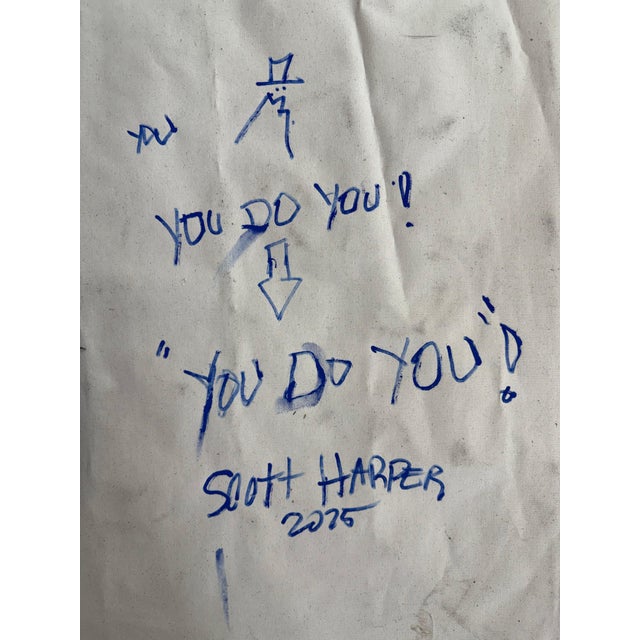 YOU
YOU DO YOU!
"YOU DO YOU"!
SCOTT HARPER
2025